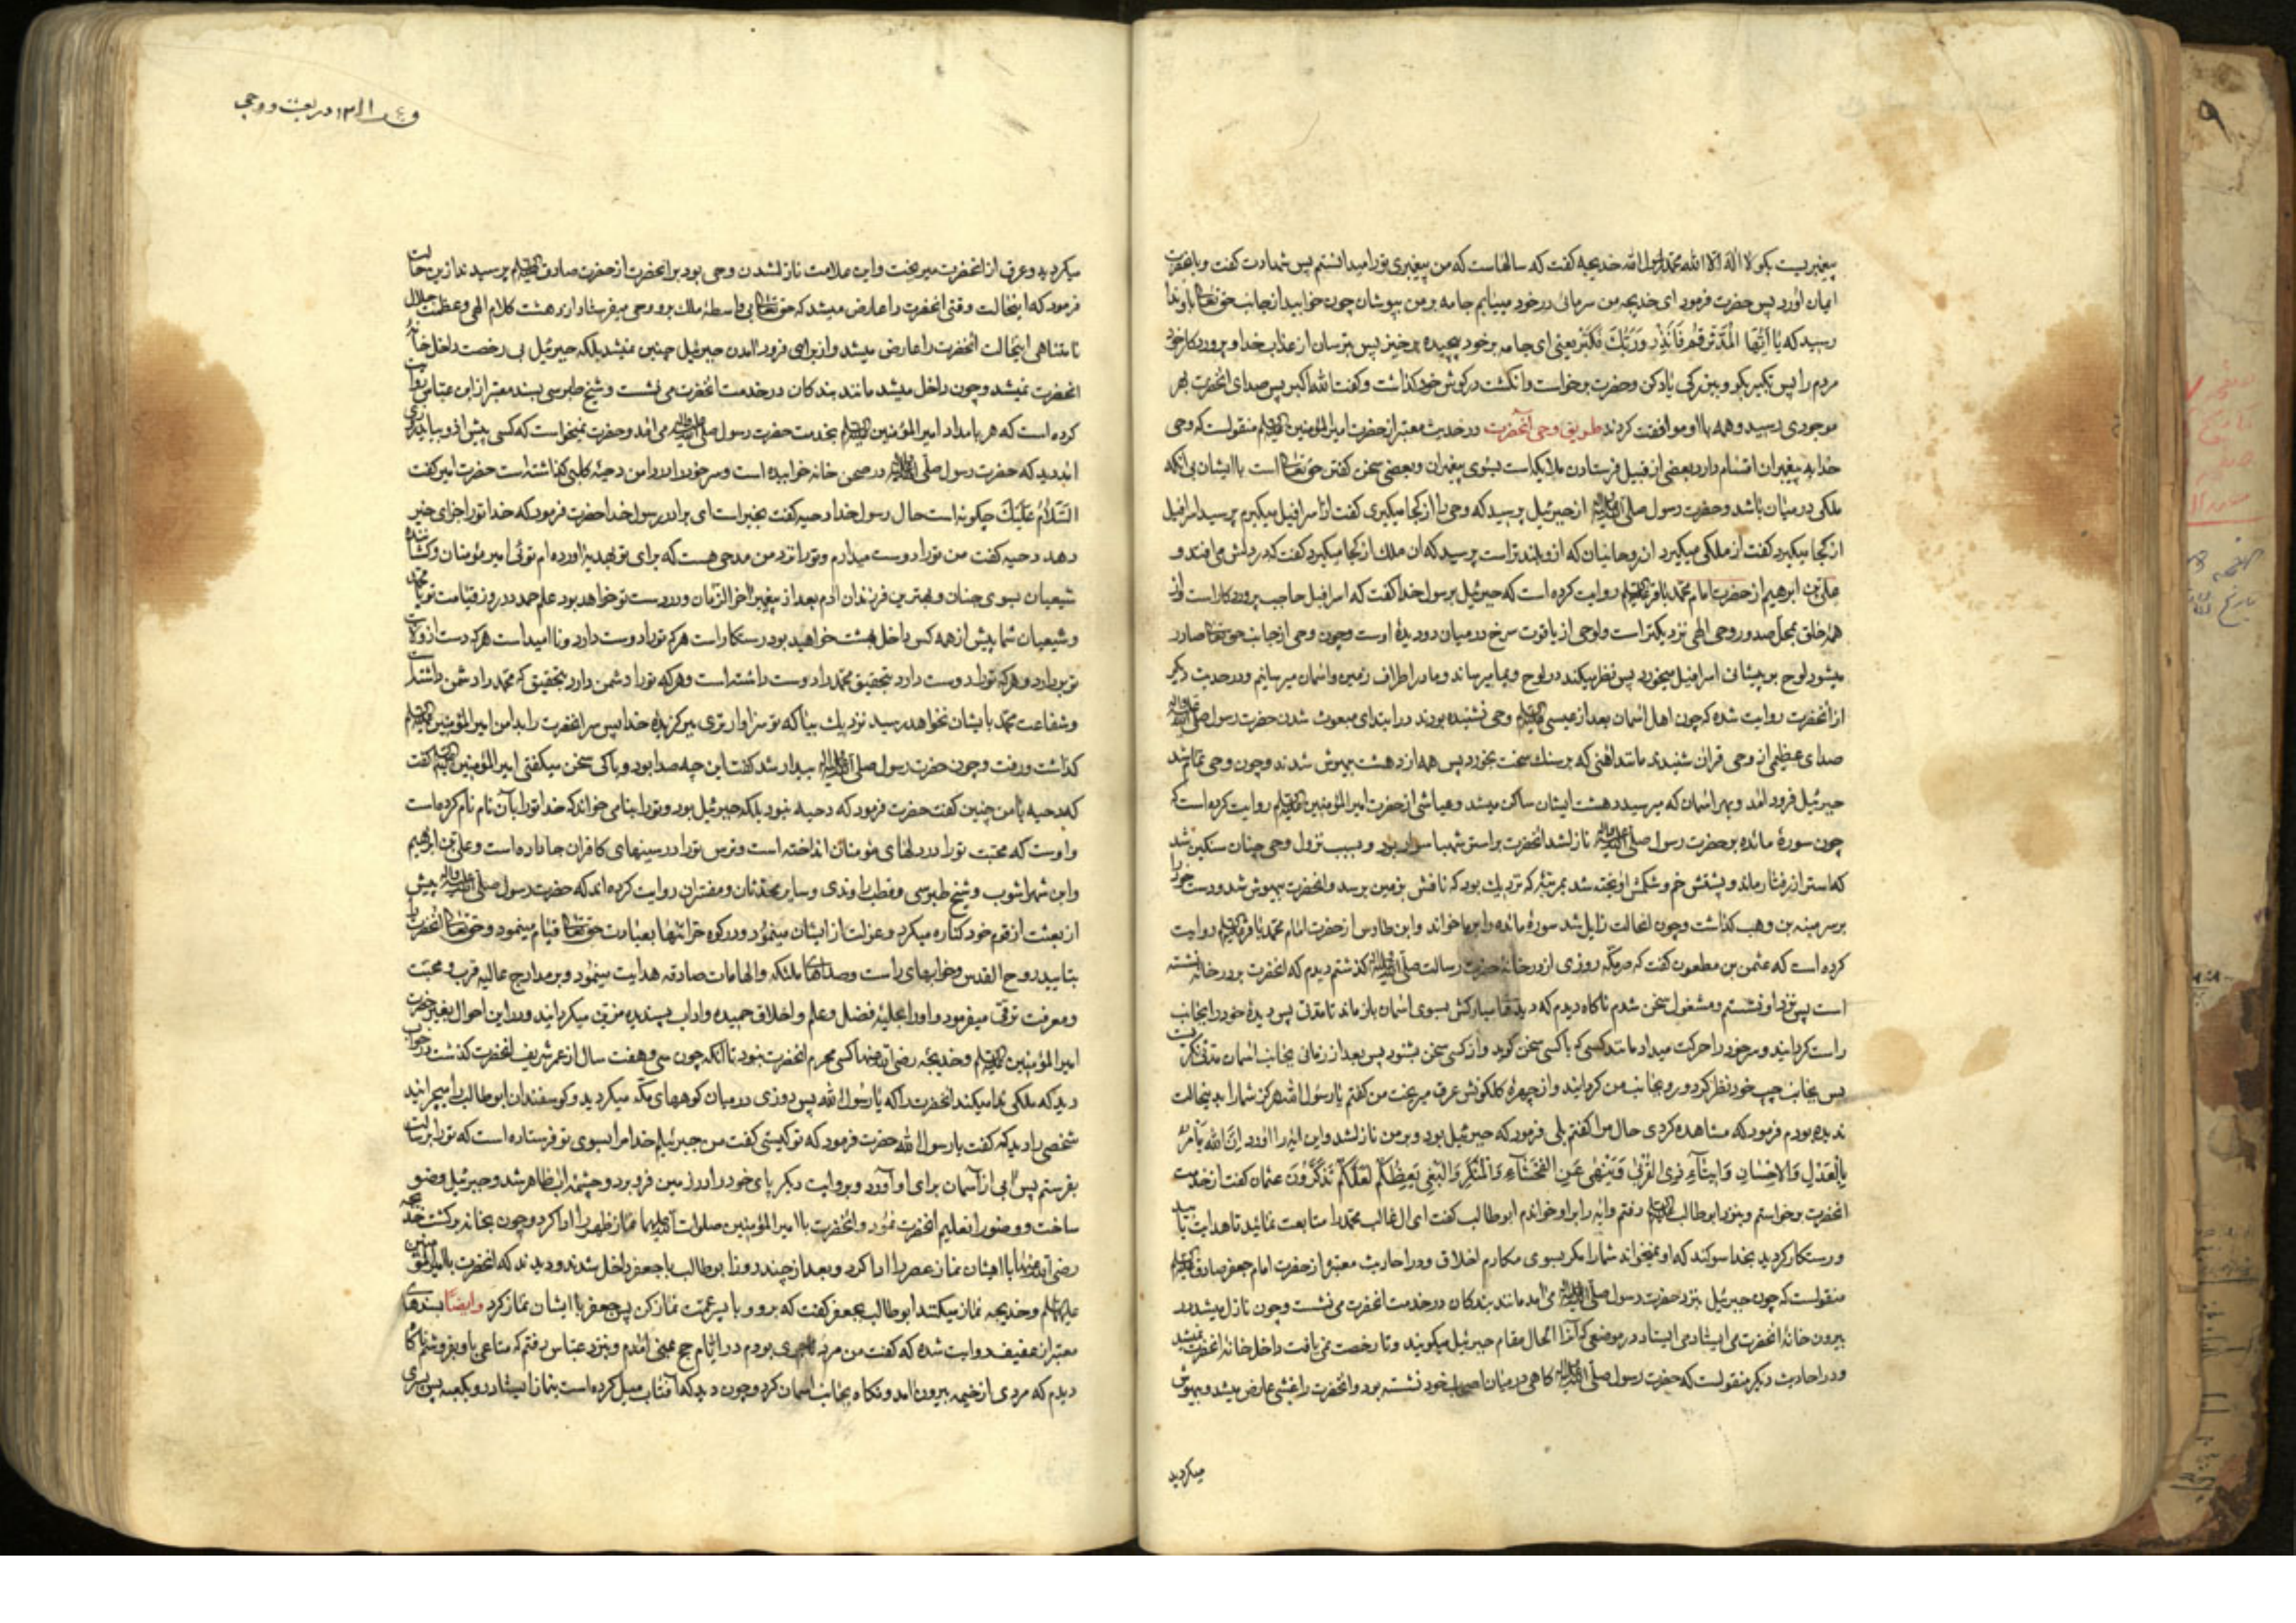 پیغمبریست بکو لا اله الا الله محمد رسول الله خدیجه کفت که سالهاست که من پیغمبری تورا میدانستم پس شهادت کفت و بانحضرت
ایمان اورد پس حضرت فرمود ای خدیجه من سرمائی در خود مییابم جامه بر من بپوشان چون خوابید از جانب حق تعالی باو ندا
رسید که یا ایها المدثر قم فانذر وربک فکبر یعنی ای جامه برخود پیچیده برخیز پس بترسان از عذاب خدا و پروردکار خود
مردم را پس تکبیر بکو و ببزرکی یاد کن وحضرت برخواست و انکشت در کوش خود کذاشت و کفت الله اکبر پس صدای انحضرت بهر
موجودی رسید و همه با او موافقت کردند طریق وحی آنحضرت در حدیث معتبر از حضرت امیرالمؤمنین علیه السلام منقولست که وحی
خدا به پیغمبران اقسام دارد بعضی از قبیل فرستادن ملایکه است بسوی پیغمبران و بعضی سخن کفتن حق تعالی است با ایشان بی انکه
ملکی در میان باشد وحضرت رسول صلی الله علیه واله از جبرئیل پرسید که وحی را از کجا میکیری کفت از اسرافیل میکیرم پرسید اسرافیل
از کجا میکیرد کفت از ملکی میکیرد از روحانیان که ازو بلند تر است پرسید که ان ملک از کجا میکیرد کفت که در دلش می افتد و
علی بن ابرهیم از حضرت امام محمد باقر علیه السلام روایت کرده است که جبرئیل برسول خدا کفت که اسرافیل حاجب پروردکار است و از
همه خلق بمحل صدور وحی الهی نزدیکتر است ولوحی از یاقوت سرخ در میان دو دیدۀ اوست وچون وحی از جانب حق تعالی صادر
میشود لوح بر پیشانی اسرافیل میخورد پس نظر میکند در لوح و بما میرساند و ما در اطراف زمین واسمان میرسانیم ودر حدیث دیکر
از انحضرت روایت شده که چون اهل اسمان بعد از عیسی علیه السلام وحی نشنیده بودند در ابتدای مبعوث شدن حضرت رسول صلی الله علیه واله
صدای عظیمی از وحی قران شنیدند مانند اهنی که بر سنک سخت بخورد پس همه از دهشت بیهوش شدند وچون وحی تمام شد
جبرئیل فرود امد و بهر اسمان که میرسید دهشت ایشان ساکن میشد و عیاشی از حضرت امیرالمؤمنین علیه السلام روایت کرده است که
چون سورۀ مائده بر حضرت رسول صلی الله علیه واله نازلشد انحضرت بر استر شهبا سوار بود و بسبب نزول وحی چنان سنکین شد
که استر از رفتار ماند و پشتش خم و شکمش اویخته شد بمرتبۀ که نزدیک بود که نافش بزمین برسد وانحضرت بیهوش شد ودست خود را
بر سر منبه بن وهب کذاشت وچون انحالت زایل شد سورۀ مائده را بر ما خواند وابن طاوس از حضرت امام محمد باقر علیه السلام روایت
کرده است که عثمن بن مظعون کفت که در مکه روزی از در خانۀ حضرت رسالت صلی الله علیه واله کذشتم دیدم که انحضرت بر در خانه نشسته
است پس نزد او نشستم و مشغول سخن شدم ناکاه دیدم که دیدهای مبارکش بسوی اسمان باز ماند تا مدتی پس دیدۀ خود را بجانب
راست کردانید وسر خود را حرکت میداد مانند کسی که با کسی سخن کوید و از کسی سخن بشنود پس بعد از زمانی بجانب اسمان مدتی نکریست
پس بجانب چپ خود نظر کرد و رو بجانب من کردانید و از چهرۀ کلکونش عرق میریخت من کفتم یا رسول الله هرکز شما را بچنین حالت
ندیده بودم فرمود که مشاهده کردی حال مرا کفتم بلی فرمود که جبرئیل بود و بر من نازلشد واین ایه را اورد ان الله یامر
بالعدل والاحسان وایتاء ذی القربی وینهی عن الفحشاء والمنکر والبغی یعظکم لعلکم تذکرون عثمان کفت از خدمت
انحضرت برخواستم و بنزد ابوطالب علیه السلام رفتم و ایه را بر او خواندم ابوطالب کفت ای ال غالب محمد را متابعت نمائید تا هدایت یابید
و رستکار کردید بخدا سوکند که او نمیخواند شما را مکر بسوی مکارم اخلاق ودر احادیث معتبر از حضرت امام جعفر صادق علیه السلام
منقولست که چون جبرئیل بنزد حضرت رسول صلی الله علیه واله می امد مانند بندکان در خدمت انحضرت می نشست وچون نازل میشد در
بیرون خانۀ انحضرت می ایستاد در موضعی که آنرا الحال مقام جبرئیل میکویند و تا رخصت نمی یافت داخل خانۀ انحضرت نمیشد
ودر احادیث دیکر منقولست که حضرت رسول صلی الله علیه واله کاهی در میان اصحاب خود نشسته بود وانحضرت را غشی عارض میشد و بیهوش
میکردید
در بعثت و وحی
میکردید و عرق از انحضرت میریخت واین علامت نازلشدن وحی بود بر انحضرت از حضرت صادق علیه السلام پرسیدند از این حالت
فرمود که اینحالت وقتی انحضرت را عارض میشد که حق تعالی بی واسطۀ ملک برو وحی میفرستاد از دهشت کلام الهی وعظمت جلال
نا متناهی اینحالت انحضرت را عارض میشد و از برای فرود امدن جبرئیل چنین نمیشد بلکه جبرئیل بی رخصت داخل خانۀ
انحضرت نمیشد وچون داخل میشد مانند بندکان در خدمت انحضرت می نشست و شیخ طبرسی بسند معتبر از ابن عباس روایت
کرده است که هر بامداد امیرالمؤمنین علیه السلام بخدمت حضرت رسول صلی الله علیه واله می امد وحضرت نمیخواست که کسی پیش ازو بیاید روزی
امد دید که حضرت رسول صلی الله علیه واله در صحن خانه خوابیده است وسر خود را در دامن دحیۀ کلبی کذاشته است حضرت امیر کفت
السلام علیک چکونه است حال رسول خدا دحیه کفت بخیر است ای برادر رسول خدا حضرت فرمود که خدا تورا جزای خیر
دهد دحیه کفت من تورا دوست میدارم وتورا نزد من مدحی هست که برای تو بهدیه اورده ام توئی امیر مؤمنان وکشانندۀ
شیعیان بسوی جنان وبهترین فرزندان ادم بعد از پیغمبر اخر الزمان ودر دست تو خواهد بود علم حمد در روز قیامت تو با محمد
وشیعیان شما پیش از همه کس داخل بهشت خواهید بود رستکار است هرکه تورا دوست دارد ونا امید است هرکه دست از ولایت
تو بردارد وهرکه تورا دوست دارد بتحقیق محمد را دوست داشته است وهرکه تورا دشمن دارد بتحقیق که محمد را دشمن داشته است
وشفاعت محمد بایشان نخواهد رسید نزدیک بیا که تو سزاوارتری ببرکزیدۀ خدا پس سر انحضرت را بدامن امیرالمؤمنین علیه السلام
کذاشت ورفت وچون حضرت رسول صلی الله علیه واله بیدار شد کفت این چه صدا بود وباکی سخن میکفتی امیرالمؤمنین علیه السلام کفت
که دحیه با من چنین کفت حضرت فرمود که دحیه نبود بلکه جبرئیل بود وتورا بنامی خواند که خدا تورا بآن نام نام کرده است
واوست که محبت تورا در دلهای مؤمنان انداخته است وترس تورا در سینهای کافران جا داده است وعلی بن ابرهیم
وابن شهراشوب وشیخ طبرسی وقطب راوندی وسایر محدثان ومفسران روایت کرده اند که حضرت رسول صلی الله علیه واله پیش
از بعثت از قوم خود کناره میکرد وعزلت از ایشان مینمود ودر کوه حرا تنها بعبادت حق تعالی قیام مینمود وحق تعالی انحضرت را
بتایید روح القدس وخوابهای راست وصداهای ملئکه والهامات صادقه هدایت مینمود وبر مدارج عالیه قرب ومحبت
ومعرفت ترقی میفرمود واورا بحلیۀ فضل وعلم واخلاق حمیده واداب پسندیده مزین میکردانید ودر این احوال بغیر حضرت
امیرالمؤمنین علیه السلام وخدیجه رضی الله عنها کسی محرم انحضرت نبود تا انکه چون سی وهفت سال از عمر شریف انحضرت کذشت در خواب
دید که ملکی ندا میکند انحضرت را که یا رسول الله پس روزی در میان کوههای مکه میکردید وکوسفندان ابوطالب را میچرانید
شخصی را دید که کفت یا رسول الله حضرت فرمود که تو کیستی کفت من جبرئیلم خدا مرا بسوی تو فرستاده است که تورا برسالت
بفرستم پس ابی از آسمان برای او آورد وبروایت دیکر پای خود را در زمین فرو برد وچشمۀ اب ظاهر شد وجبرئیل وضو
ساخت و وضو را تعلیم انحضرت نمود وانحضرت با امیرالمؤمنین صلوات الله علیهما نماز ظهر را ادا کرد وچون بخانه برکشت خدیجه
رضی الله عنها با ایشان نماز عصر را ادا کرد وبعد از چند روز ابوطالب با جعفر داخل شدند ودیدند که انحضرت با امیرالمؤمنین
علیهما السلام وخدیجه نماز میکنند ابوطالب بجعفر کفت که برو وبا پسر عمت نماز کن پس جعفر با ایشان نماز کرد وایضا بسندهای
معتبر از عفیف روایت شده که کفت من مرد تاجری بودم در ایام حج بمنی امدم وبنزد عباس رفتم که متاعی باو بفروشم ناکاه
دیدم که مردی از خیمه بیرون امد ونکاه بجانب اسمان کرد وچون دید که آفتاب میل کرده است بنماز ایستاد رو بکعبه پس پسری